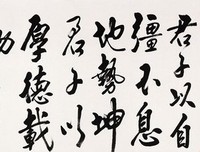 君子以自
彊不息
地勢坤
君子以
厚德載
物